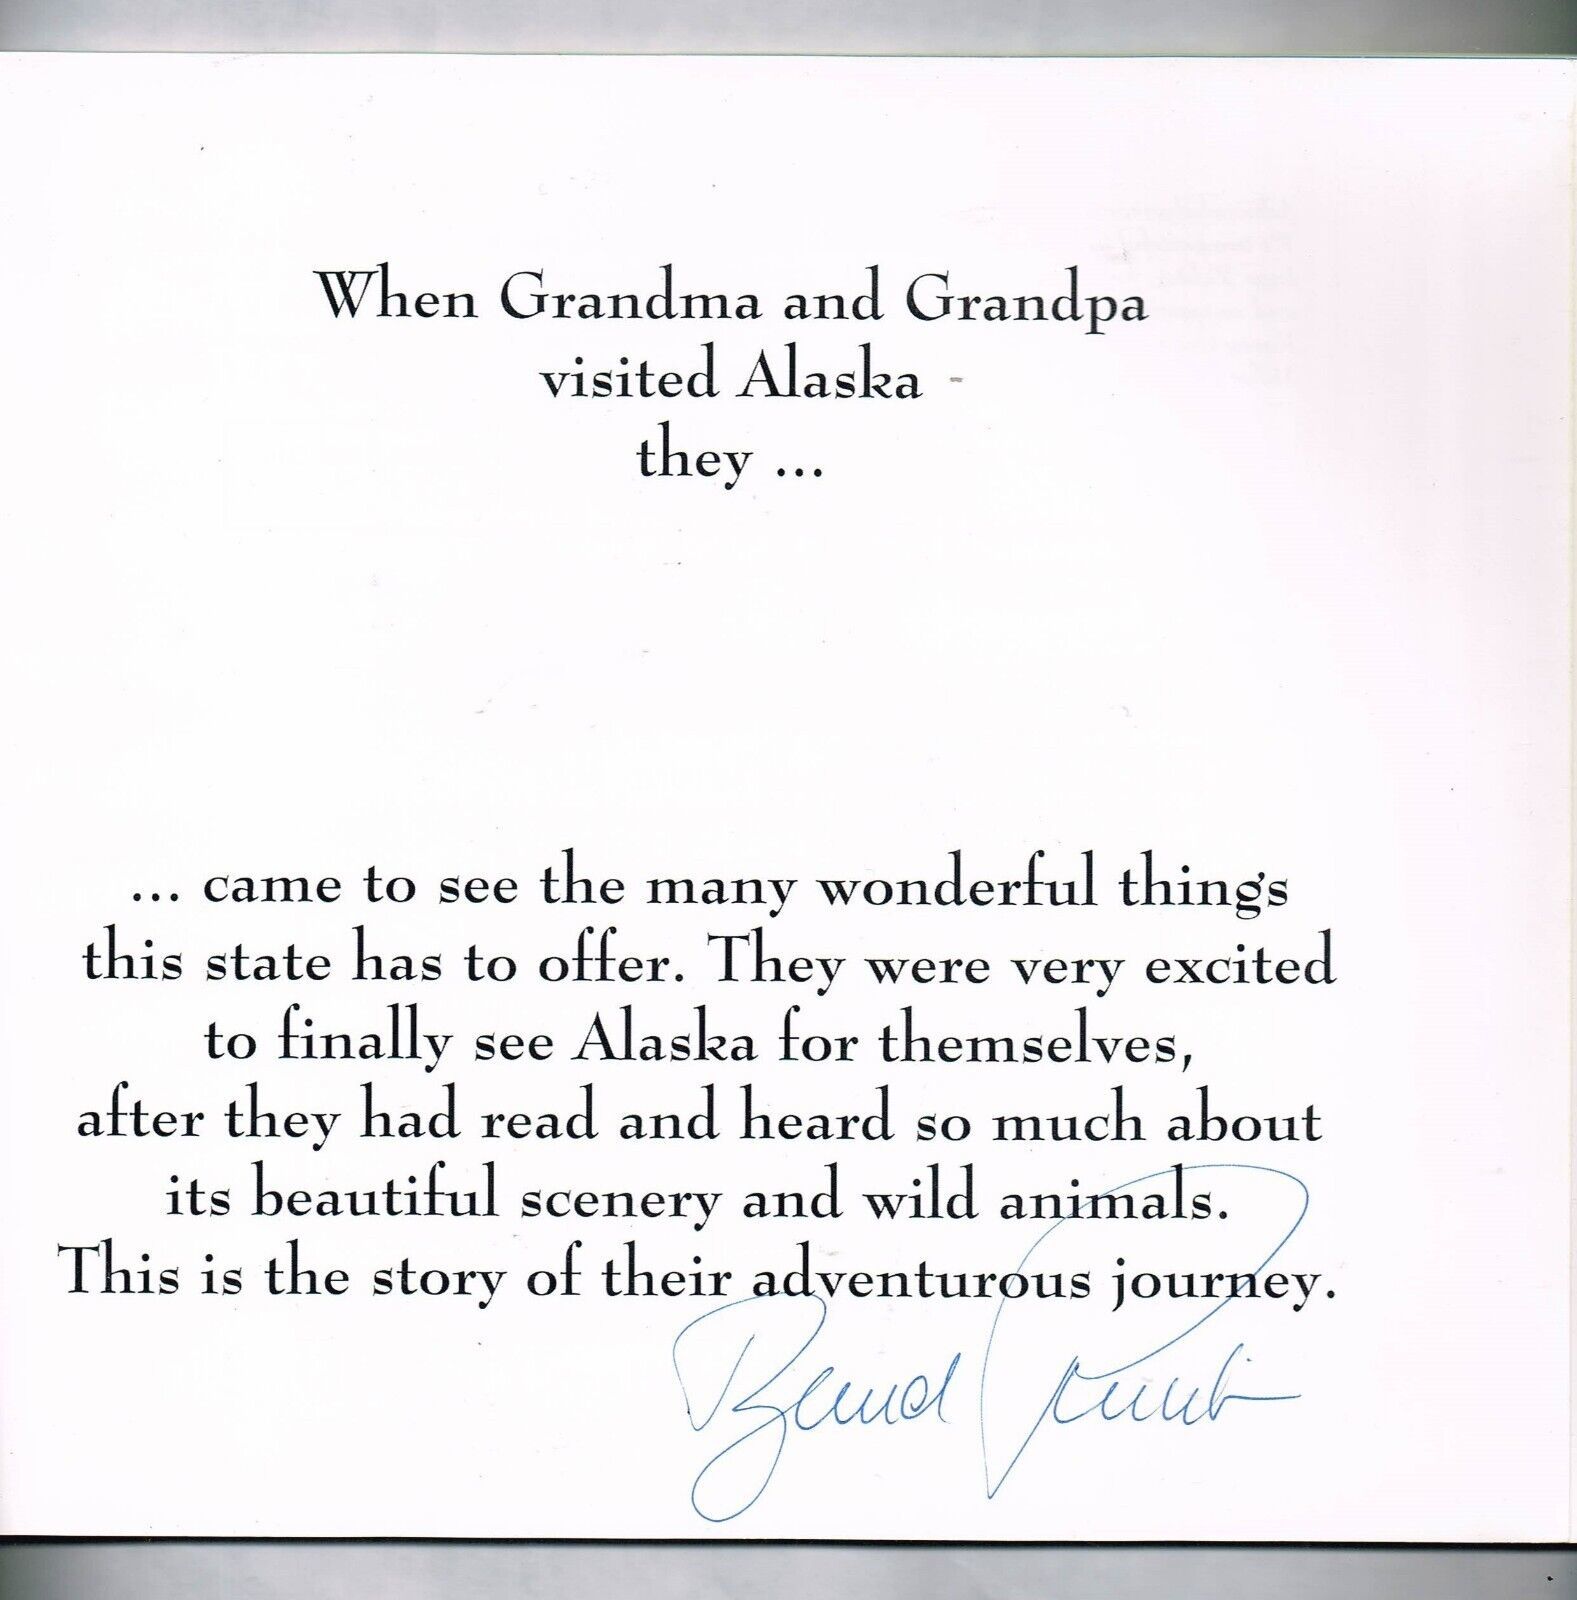 When Grandma and Grandpa
visited Alaska
they ...
... came to see the many wonderful things
this state has to offer. They were very excited
to finally see Alaska for themselves,
after they had read and heard so much about
its beautiful scenery and wild animals.
This is the story of their adventurous journey.
Bernd